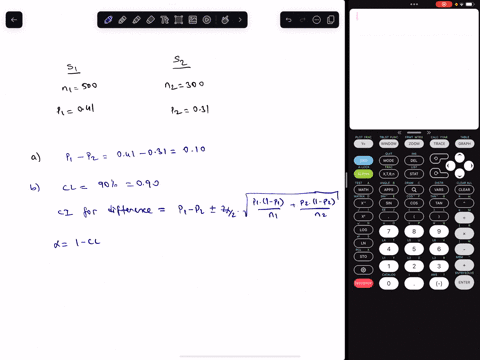 S1 S2
n1 = 500 n2 = 300
P1 = 0.41 P2 = 0.31
a) P1 - P2 = 0.41 - 0.31 = 0.10
b) CL = 90% = 0.90
CI for difference = P1 - P2 ± Zα/2 . √(P1.(1-P1)/n1 + P2.(1-P2)/n2)
α = 1 - CL
WINDOW ZOOM TRACE GRAPH
MODE DEL
X,T,θ,n STAT
MATH APPS PRGM VARS CLEAR
SIN COS TAN
LOG 7 8 9
LN 4 5 6
STO 1 2 3
0 . (-) ENTER